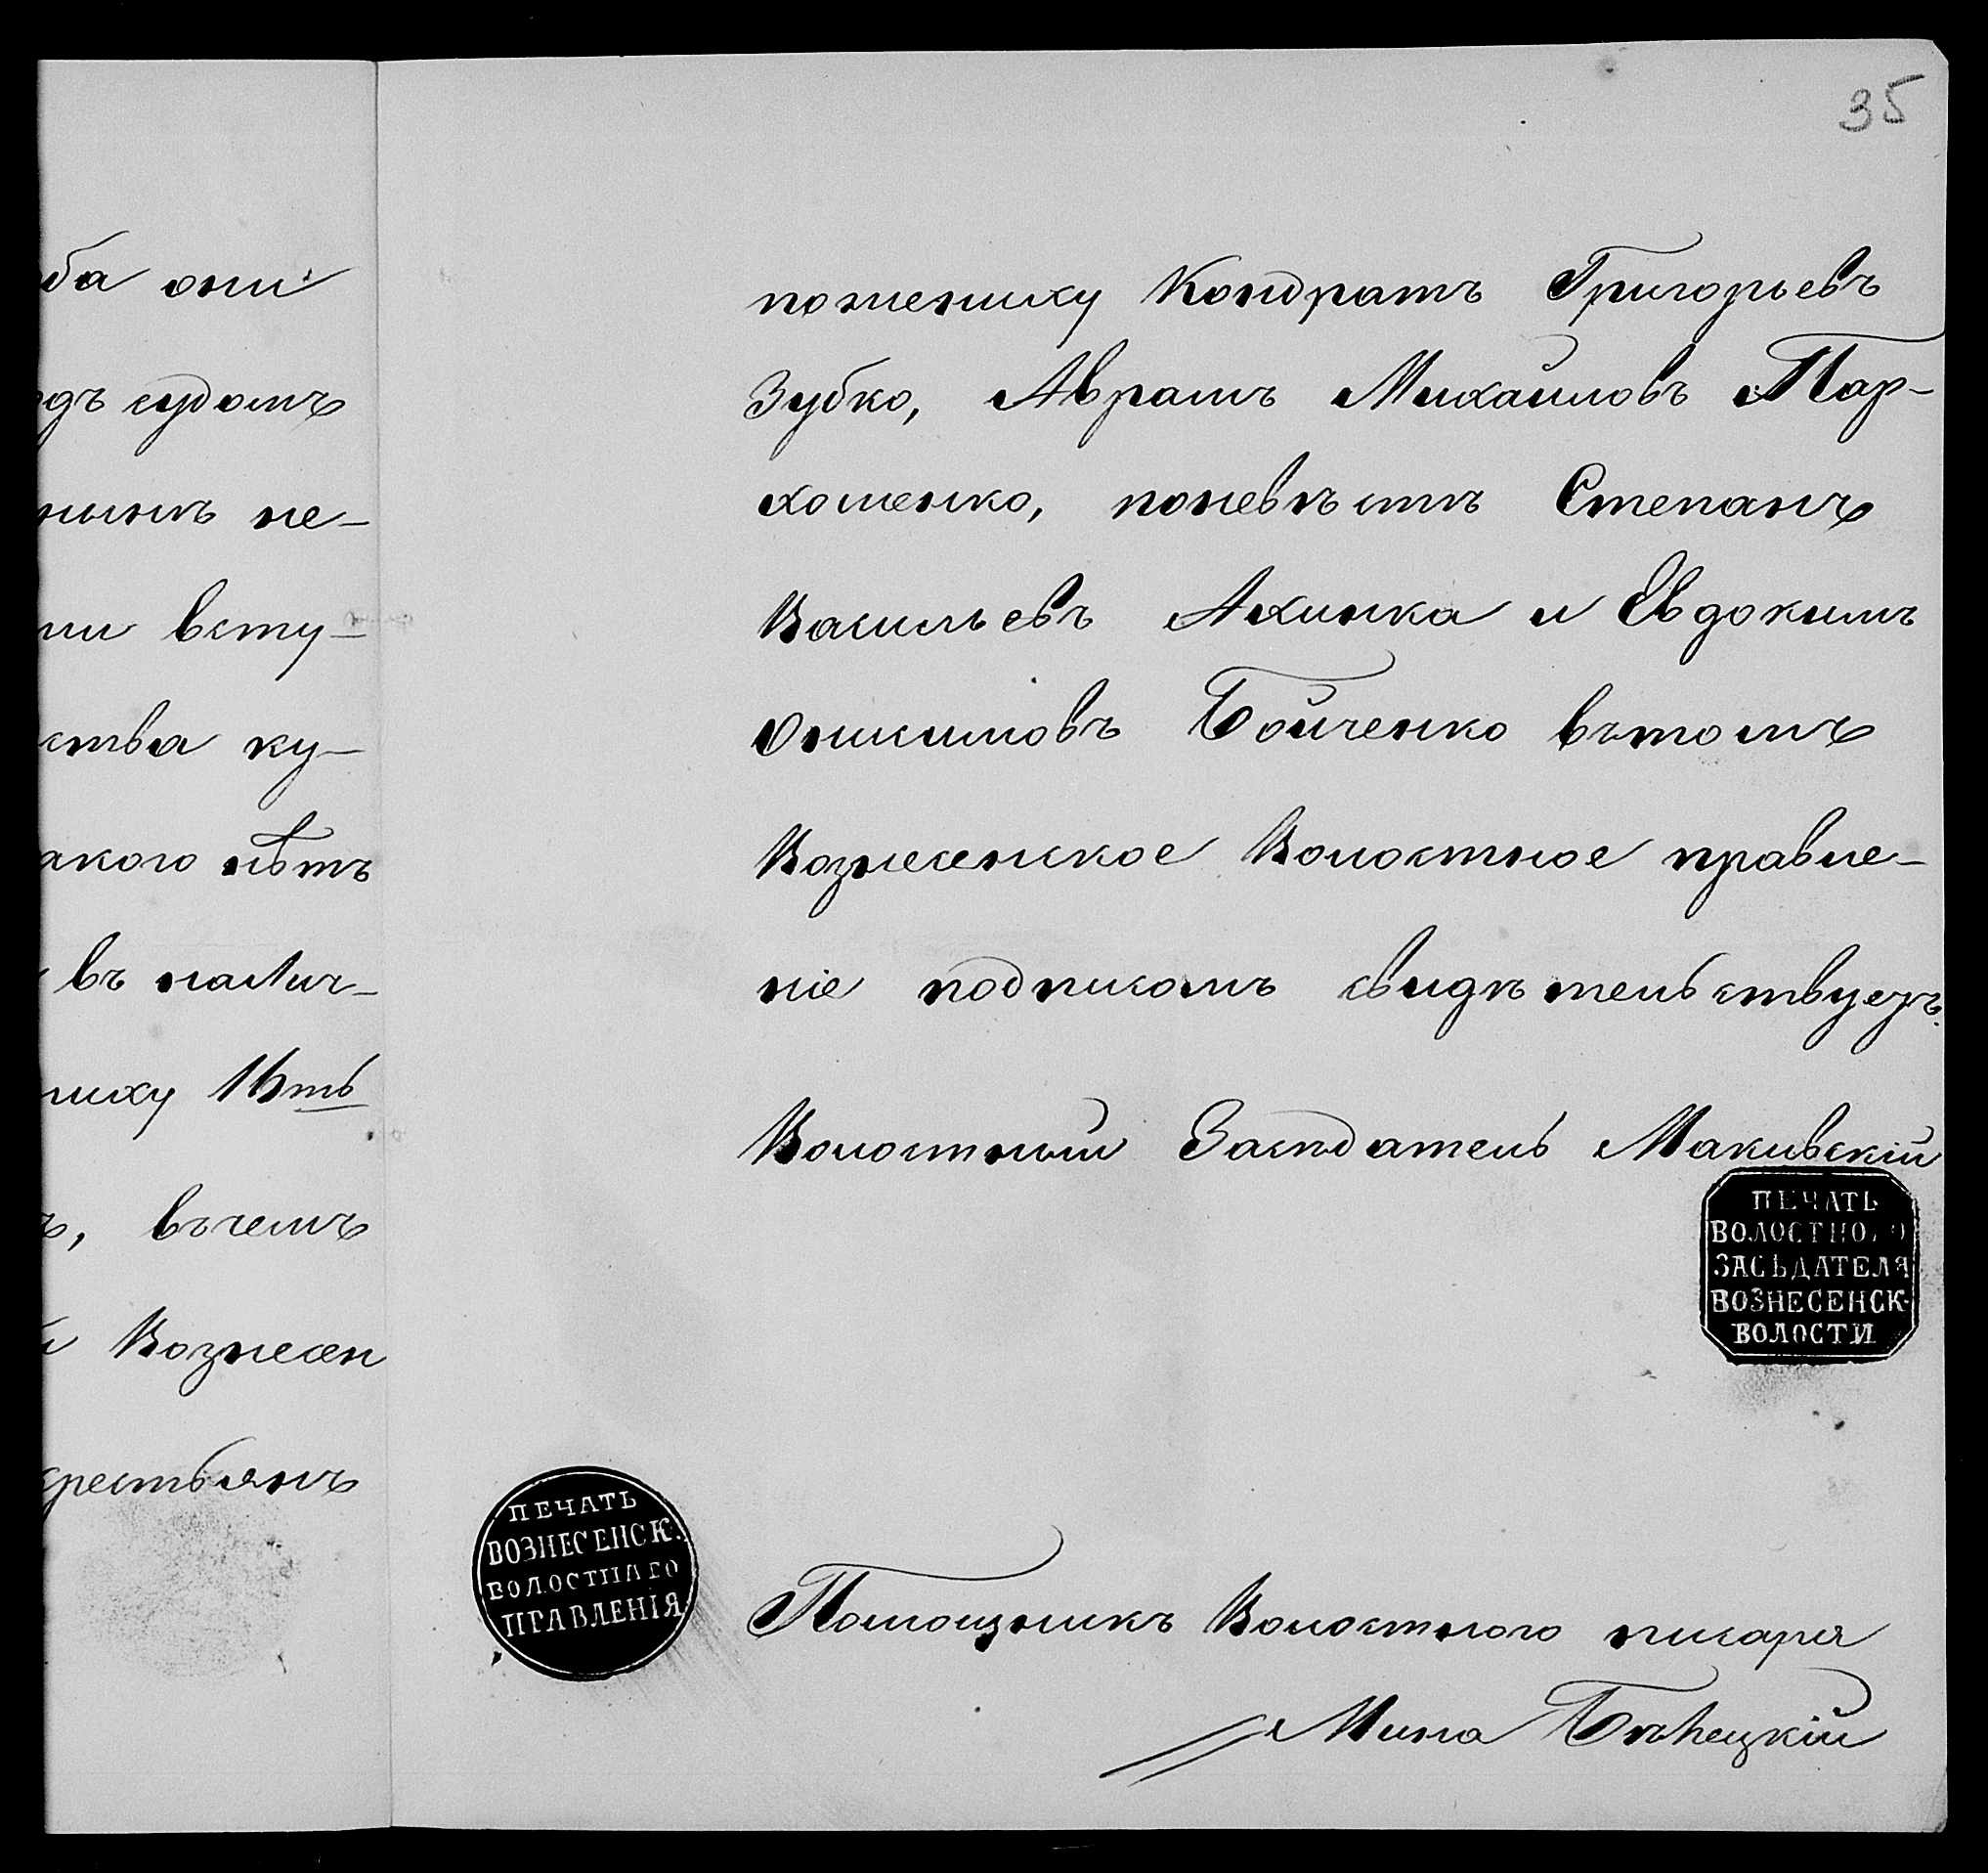 35
ба они
дъ судомъ
нымъ не-
ли всту-
ства ку-
акого нѣтъ
въ налич-
ниху 16ть
ъ, въчемъ
Вознесен
крестьянъ
поженику Кондратъ Григорьевъ
Зубко, Аврамъ Михайловъ Пар-
хоменко, поневѣстѣ Степанъ
Васильевъ Ахинка и Евдокимъ
Онисимовъ Бойченко вътомъ
Вознесенское Волостное правле-
ніе подписомъ свидѣтельствуетъ.
Волостный Засѣдатель Макивскій
ПЕЧАТЬ
ВОЛОСТНОГО
ЗАСѢДАТЕЛЯ
ВОЗНЕСЕНСК.
ВОЛОСТИ
ПЕЧАТЬ
ВОЗНЕСЕНСК.
ВОЛОСТНАГО
ПРАВЛЕНІЯ
Помощникъ Волостного писаря
Мина Бѣлецкій